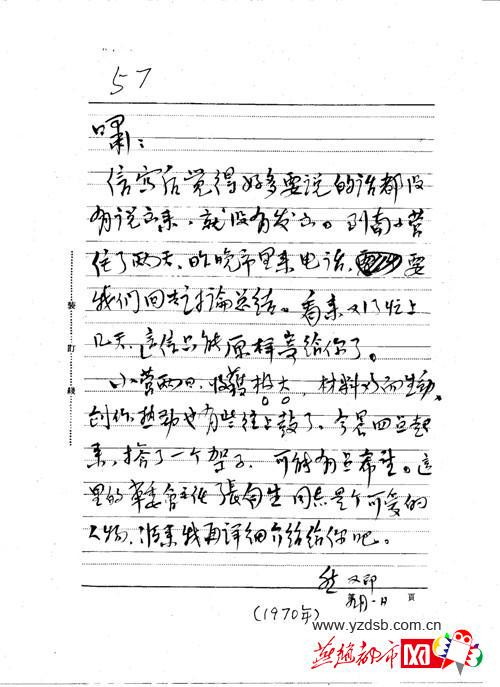 57
啸：
信写后觉得好多要说的话都没
有说出来，就没有发出。到南小营
住了两天，昨晚市里来电话，要
我们回去讨论总结。看来又得忙上
几天，这信只能原样寄给你了。
小营两日，收获极大，材料巧而生动，
创作热劲也有些往上鼓了。今晨四点起
来，搭了一个架子，可能有点希望。这
里的革委会主任張同生同志是个可爱的
人物，将来我再详细介绍给你吧。
又即
月一日
頁
(1970年)
裝訂綫
www.yzdsb.com.cn
燕趙都市网